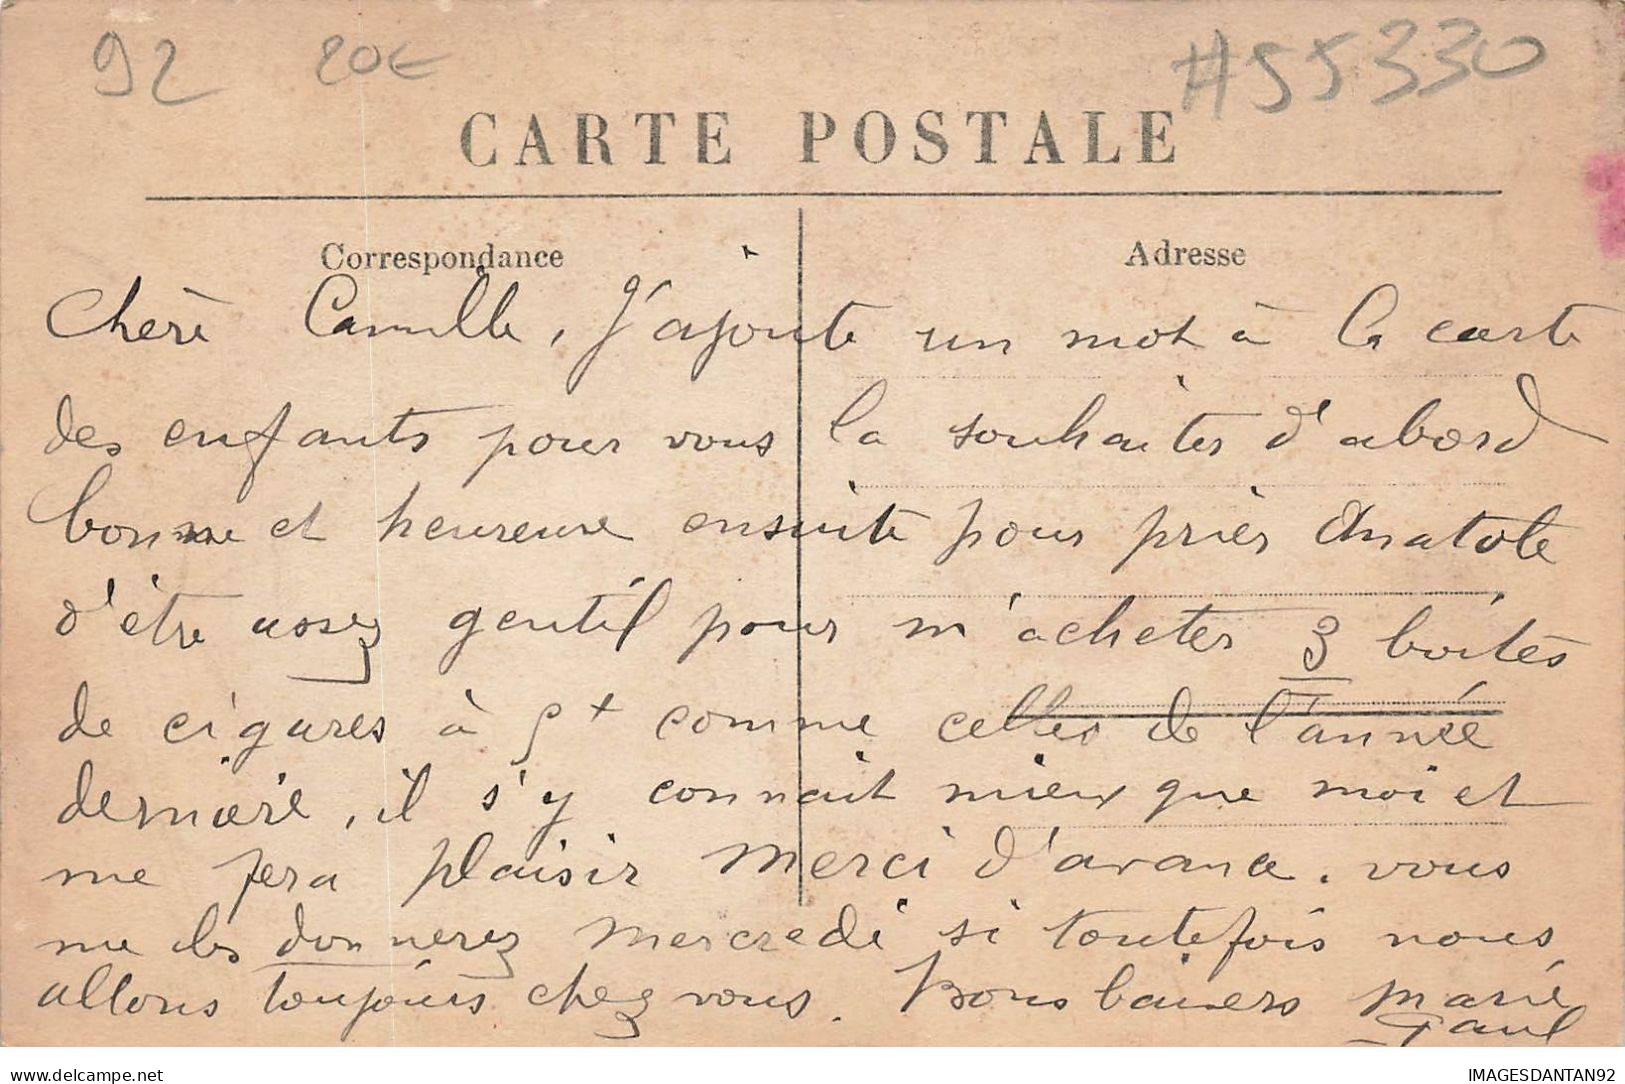 92 20€ #55330
CARTE POSTALE
Correspondance Adresse
Chère Camille, J'ajoute un mot à la carte
des enfants pour vous la souhaiter d'abord
bonne et heureuse ensuite pour prier Anatole
d'être assez gentil pour m'acheter 3 boîtes
de cigares à 5+ comme celles de l'année
dernière, il s'y connait mieux que moi et
me fera plaisir Merci d'avance. vous
me les donnerez mercredi si toutefois nous
allons toujours chez vous. Bons baisers Marie
Paul
Delcampe.net IMAGESDANTAN92